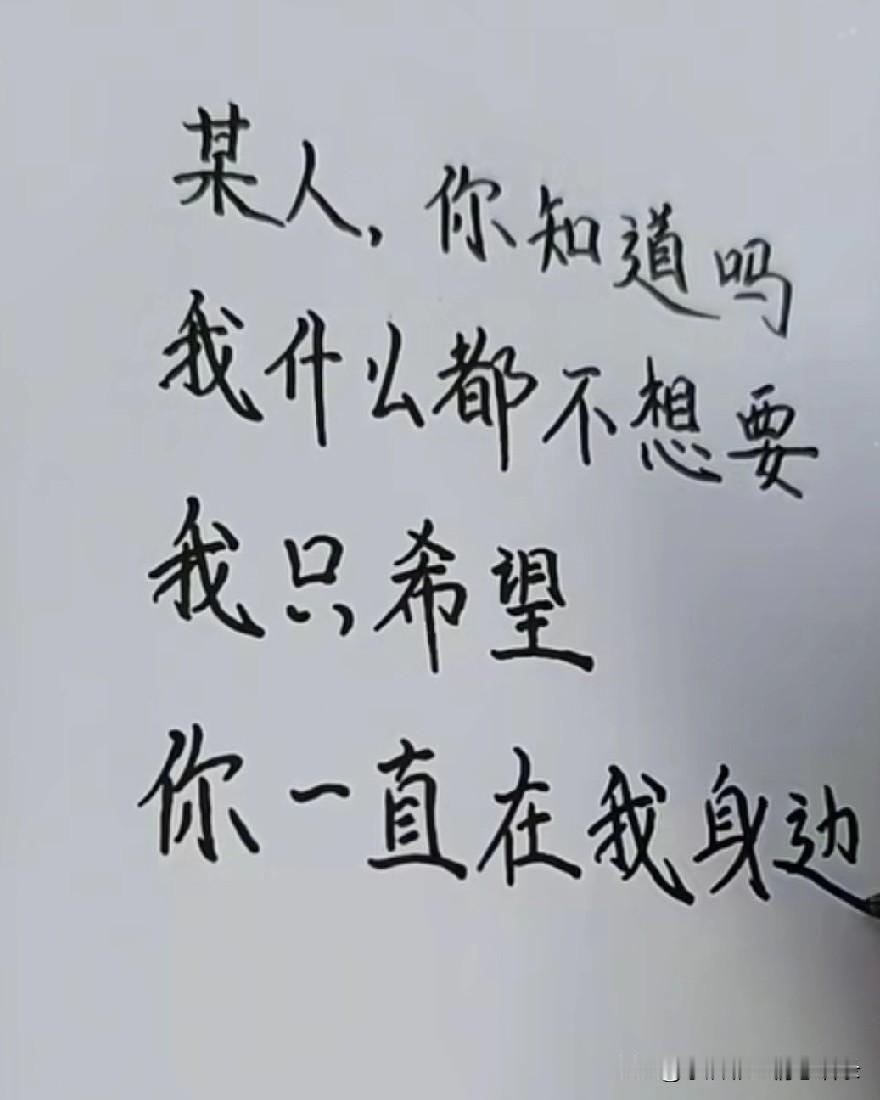 某人，你知道吗
我什么都不想要
我只希望
你一直在我身边